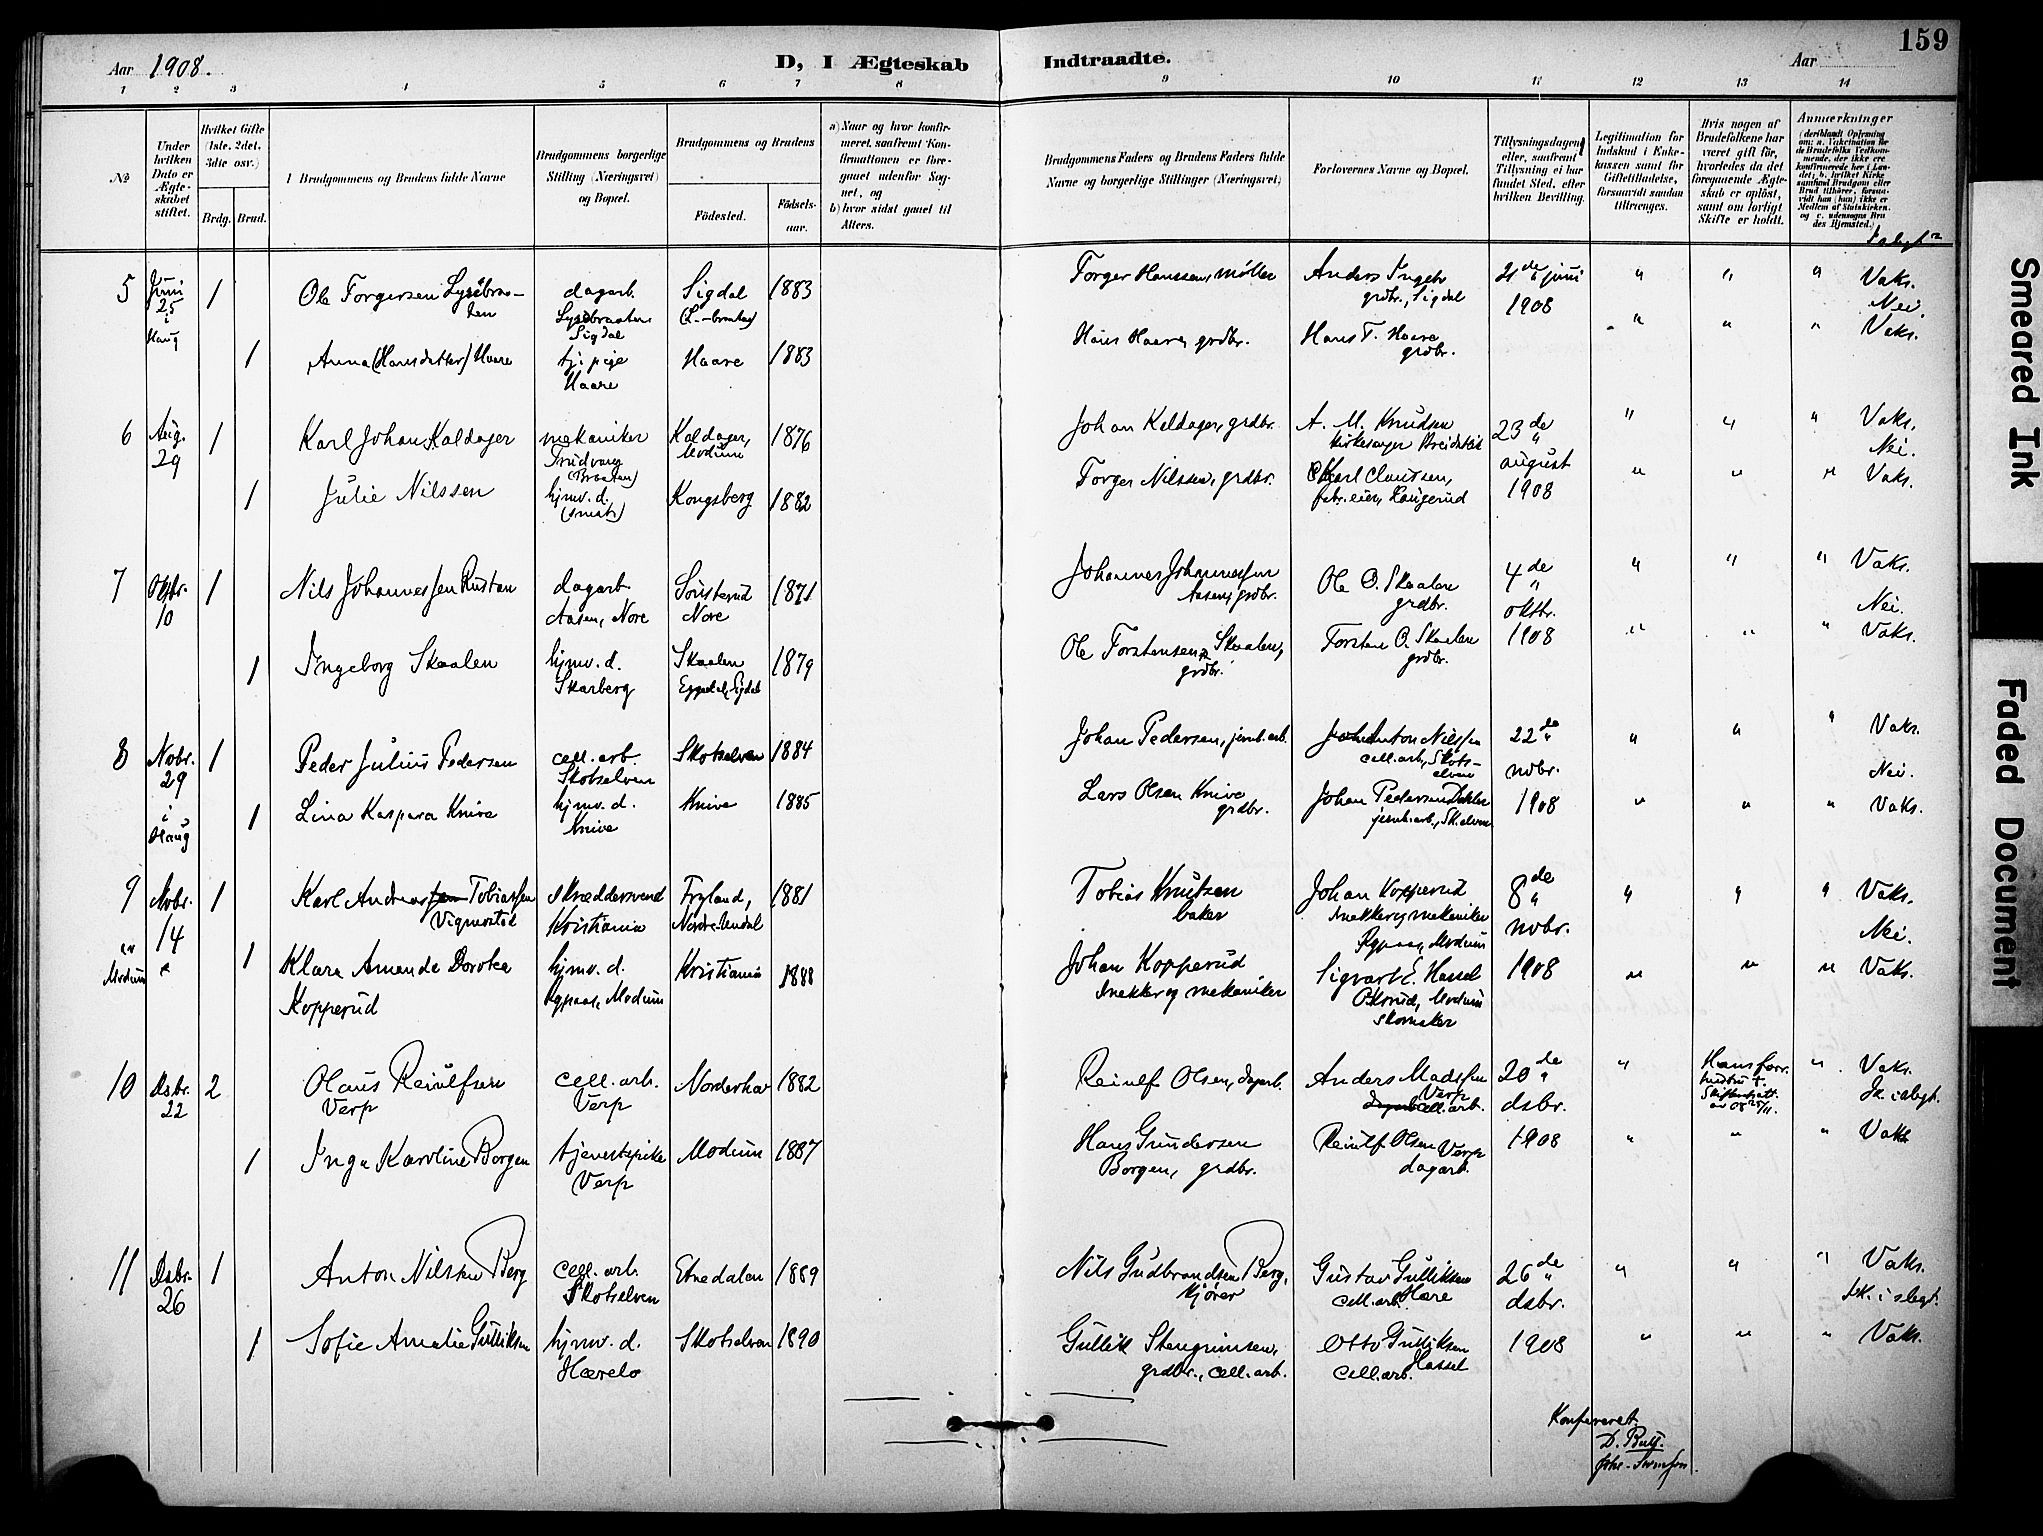 159
Aar 1908.
D, I Ægteskab Indtraadte.
Aar
1 2 3 4 5 6 7 8 9 10 11 12 13 14
No
Under hvilken Dato er Ægteskabet stiftet.
Hvilket Gifte (1ste, 2det, 3die osv.)
Brdg. Brud.
Brudgommens og Brudens fulde Navne
Brudgommens borgerlige Stilling (Næringsvei) og Bopæl.
Brudgommens og Brudens
Fødested. Fødsels-aar.
a) Naar og hvor konfirmeret, saafremt Konfirmationen er foregaaet udenfor Sognet, og
b) hvor sidst gaaet til Alters.
Brudgommens Faders og Brudens Faders fulde Navne og borgerlige Stillinger (Næringsvei)
Forlovernes Navne og Bopæl.
Tillysningsdagen, eller, saafremt Tillysning ei har fundet Sted, efter hvilken Bevilling.
Legitimation for Indskud i Enkekassen samt for Giftetilladelse, forsaavidt saadan tiltrænges.
Hvis nogen af Brudefolkene har været gift før, hvorledes da det foregaaende Ægteskab er opløst, samt om lovligt Skifte er holdt.
Anmærkninger
5 Juni 25 i Haug 1 Ole Torgersen Lysebraaten dagarb. Lysebraaten Sigdal Sigdal 1883 Torger Hanssen, møller Anders Ingebr grdbr., Sigdal 21de juni 1908 " " " Vaks. Nei.
1 Anna (Hansdatter) Haare tj. pige Haare Haare 1883 Hans Haare, grdbr. Hans T. Haare grdbr. " " " Vaks.
6 Aug. 29 1 Karl Johan Kaldager mekaniker Trudvang (Braaten) Kaldager, Modum 1876 Johan Kaldager, grdbr. A. M. Knudsen kirkesanger 23de august 1908 " " " Vaks. Nei.
1 Julie Nilssen hjmv. d. Kongsberg 1882 Torger Nilsen, grdbr. Karl Clausen, fabr. eier, Haugerud " " " Vaks.
7 Oktbr. 10 1 Nils Johannessen Rustan dagarb Aasen, Nore Sønsterud Nore 1871 Johannes Johannessen Aasen, grdbr. Ole O. Skaalen grdbr. 4de oktbr. 1908 " " " Vaks. Nei.
1 Ingeborg Skaalen hjmv. d. Skarberg Skaalen Eggedal, Sigdal 1879 Ole Torstensen Skaalen, grdbr. Torsten O. Skaalen grdbr. " " " Vaks.
8 Nobr. 29 i Haug 1 Peder Julius Pedersen cell. arb. Skotselven Skotselven 1884 Johan Pedersen, jernb. arb. Anton Nilssen cell. arb., Skotselven 22de nvbr. 1908 " " " Vaks. Nei.
1 Lina Kaspara Knive hjmv. d. Knive Knive 1885 Lars Olsen Knive grdbr. Johan Pedersen jernb. arb., Sk.elven " " " Vaks.
9 Nvbr. 14 Modum 1 Karl Andreas Tobiassen Vigmostad skræddersvend Kristiania Fryland, Nordre-Undal 1881 Tobias Knutsen baker Johan Kopperud snekker og mekaniker Modum 8de nvbr. 1908 " " " Vaks. Nei.
1 Klara Amanda Dorotea Kopperud hjmv. d. Modum Kristiania 1888 Johan Kopperud snekker og mekaniker Sigvart E. Hassel Modum skomaker " " " Vaks.
10 Dsbr. 22 2 Olaus Reiulfsen Verp cell. arb. Verp Norderhov 1882 Reiulf Olsen, dagarb. Anders Madssen Verp cell. arb. 20de dsbr. 1908 " Hans forr. hustru † Skifteratt. av 25/11 08 " Vaks. Ik. i slegt.
1 Inga Karoline Borgen tjenestepike Verp Modum 1887 Hans Gundersen Borgen, grdbr. Reiulf Olsen Verp dagarb. " " " Vaks
11 Dsbr. 26 1 Anton Nilsen Berg cell. arb. Skotselven Etnedalen 1889 Nils Gudbrandsen Berg, kjører Gustav Gulliksen Hære cell. arb. 26de dsbr. 1908 " " " Vaks. Ik. i slegt.
1 Sofie Amalie Gulliksen hjmv. d. Hærelo Skotselven 1890 Gullik Stengrimsen, grdbr., cell. arb. Otto Gulliksen Hassel cell. arb. " " " Vaks.
Konfereret.
D. Bull.
Smeared Ink
Faded Document